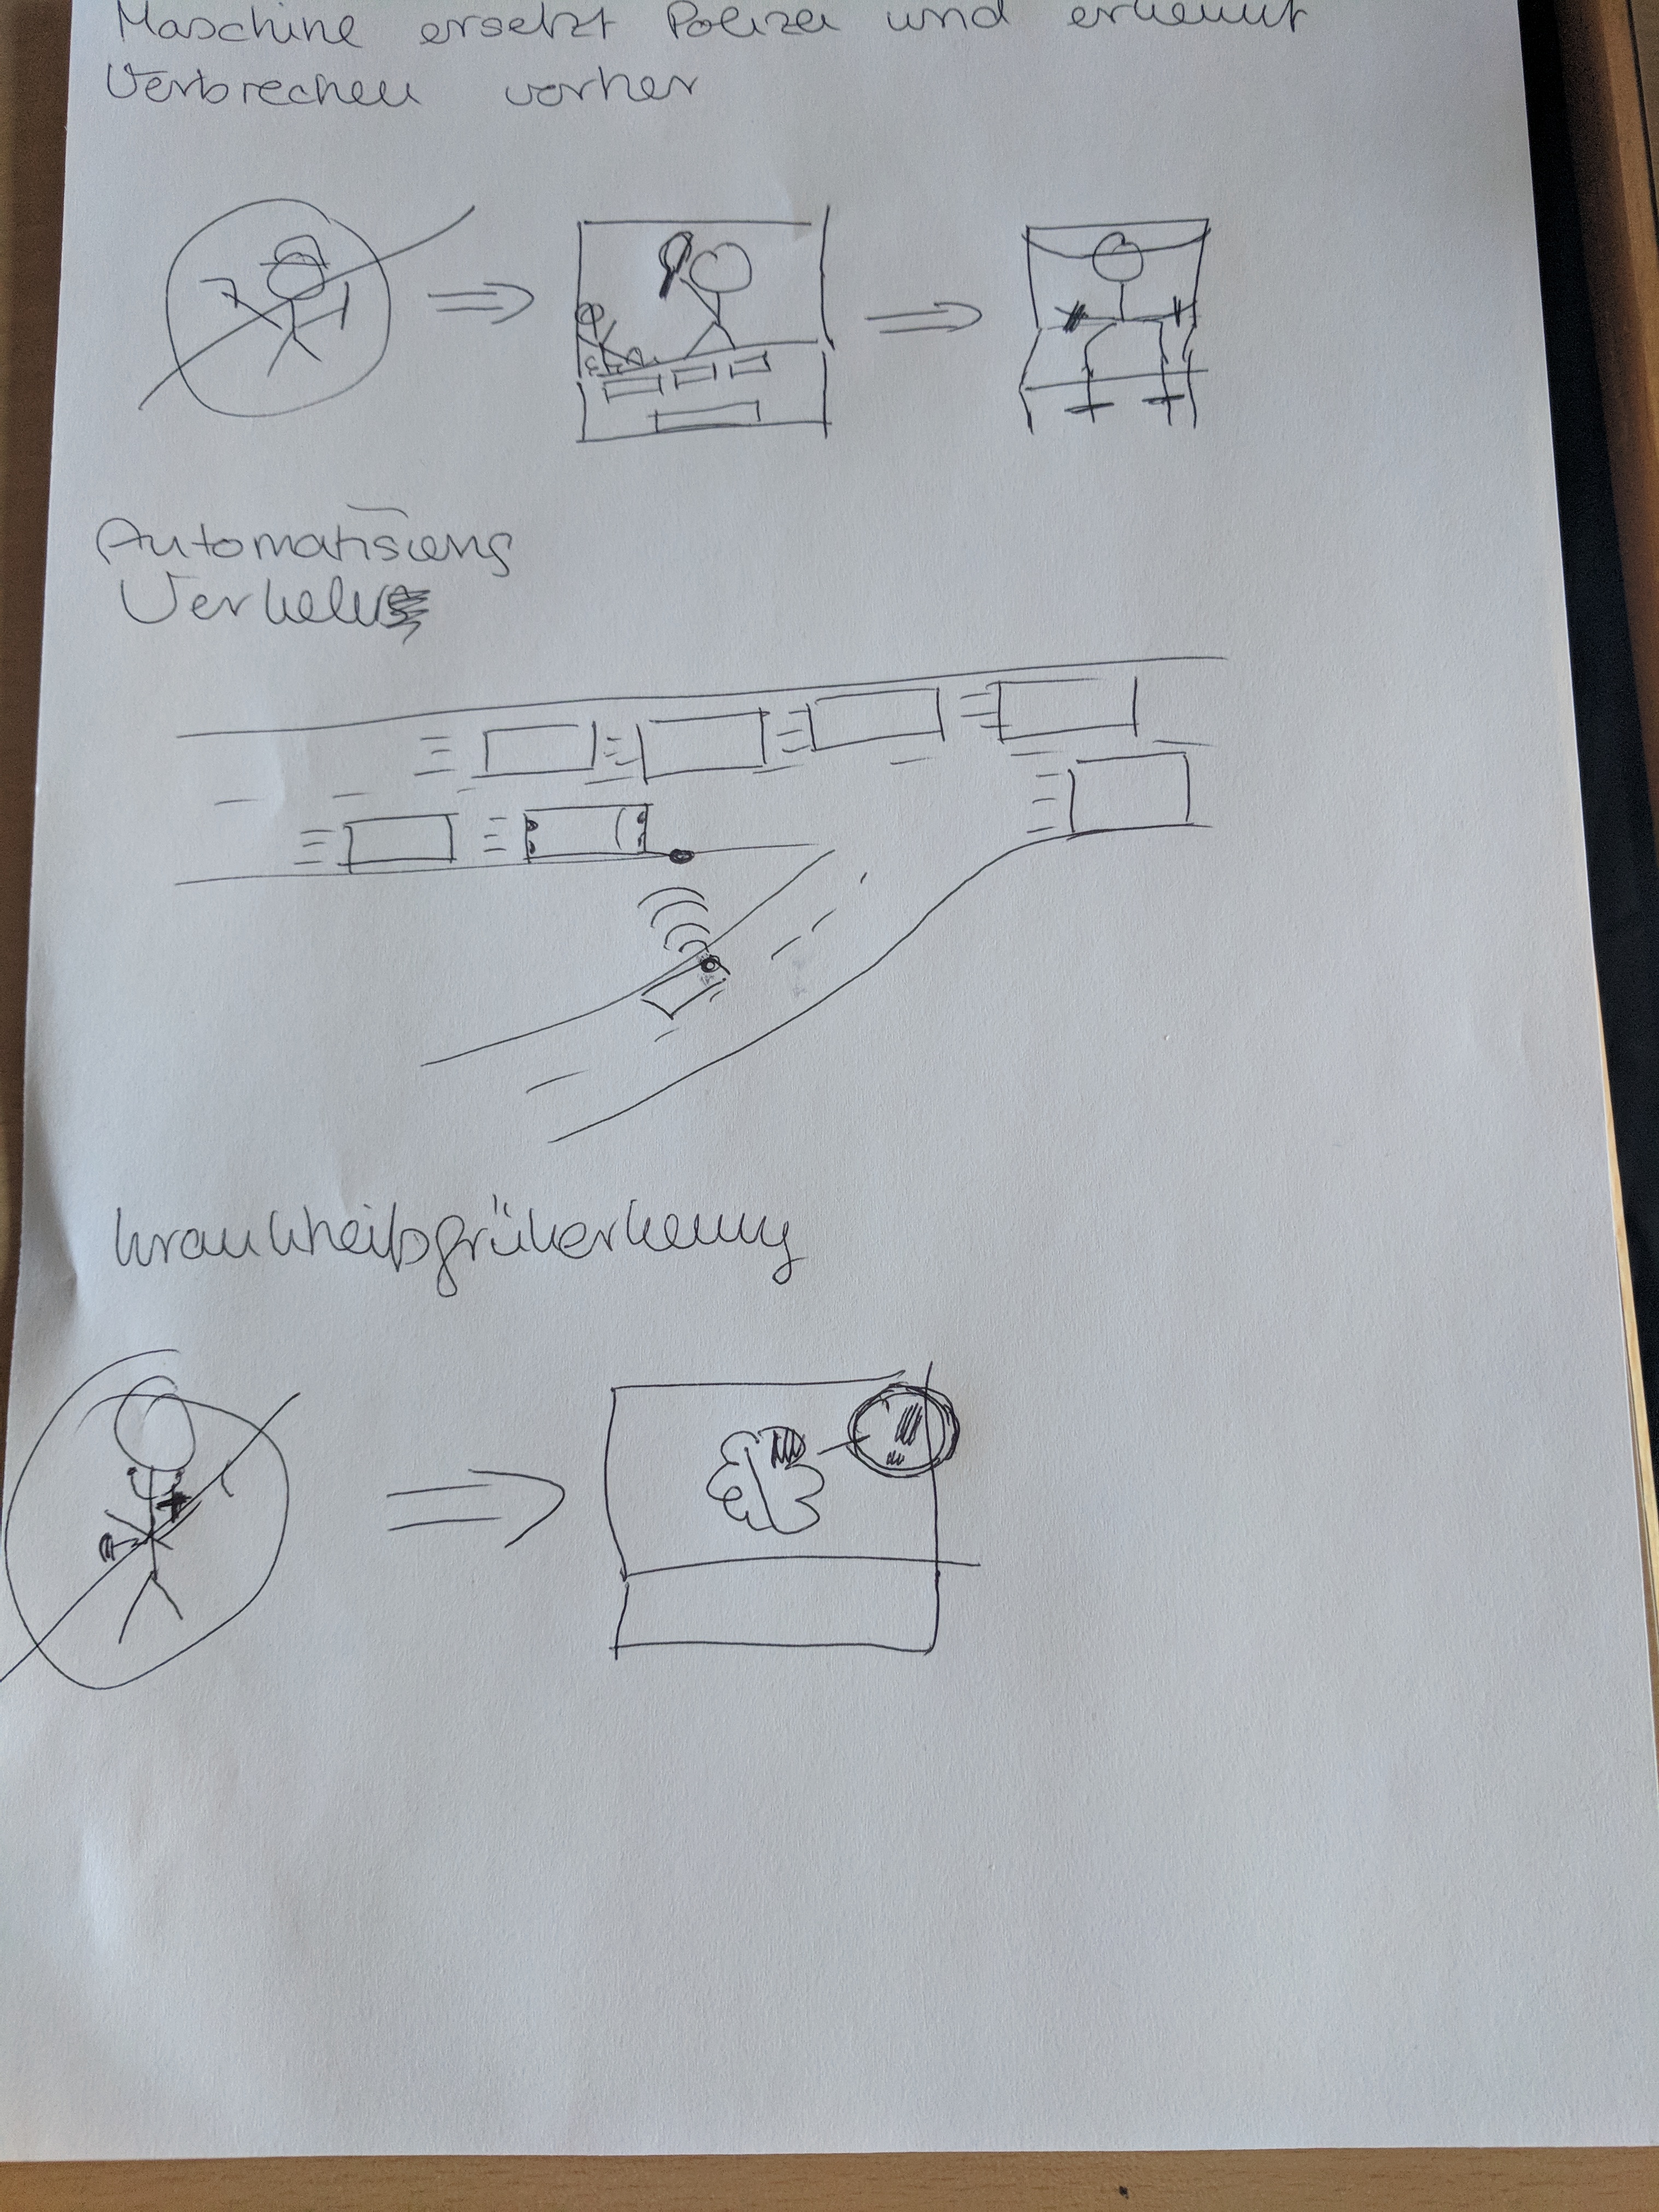 Maschine ersetzt Polizei und erkennt
Verbrechen vorher
Automatisierung
Verkehr
Krankheitsfrüherkennung